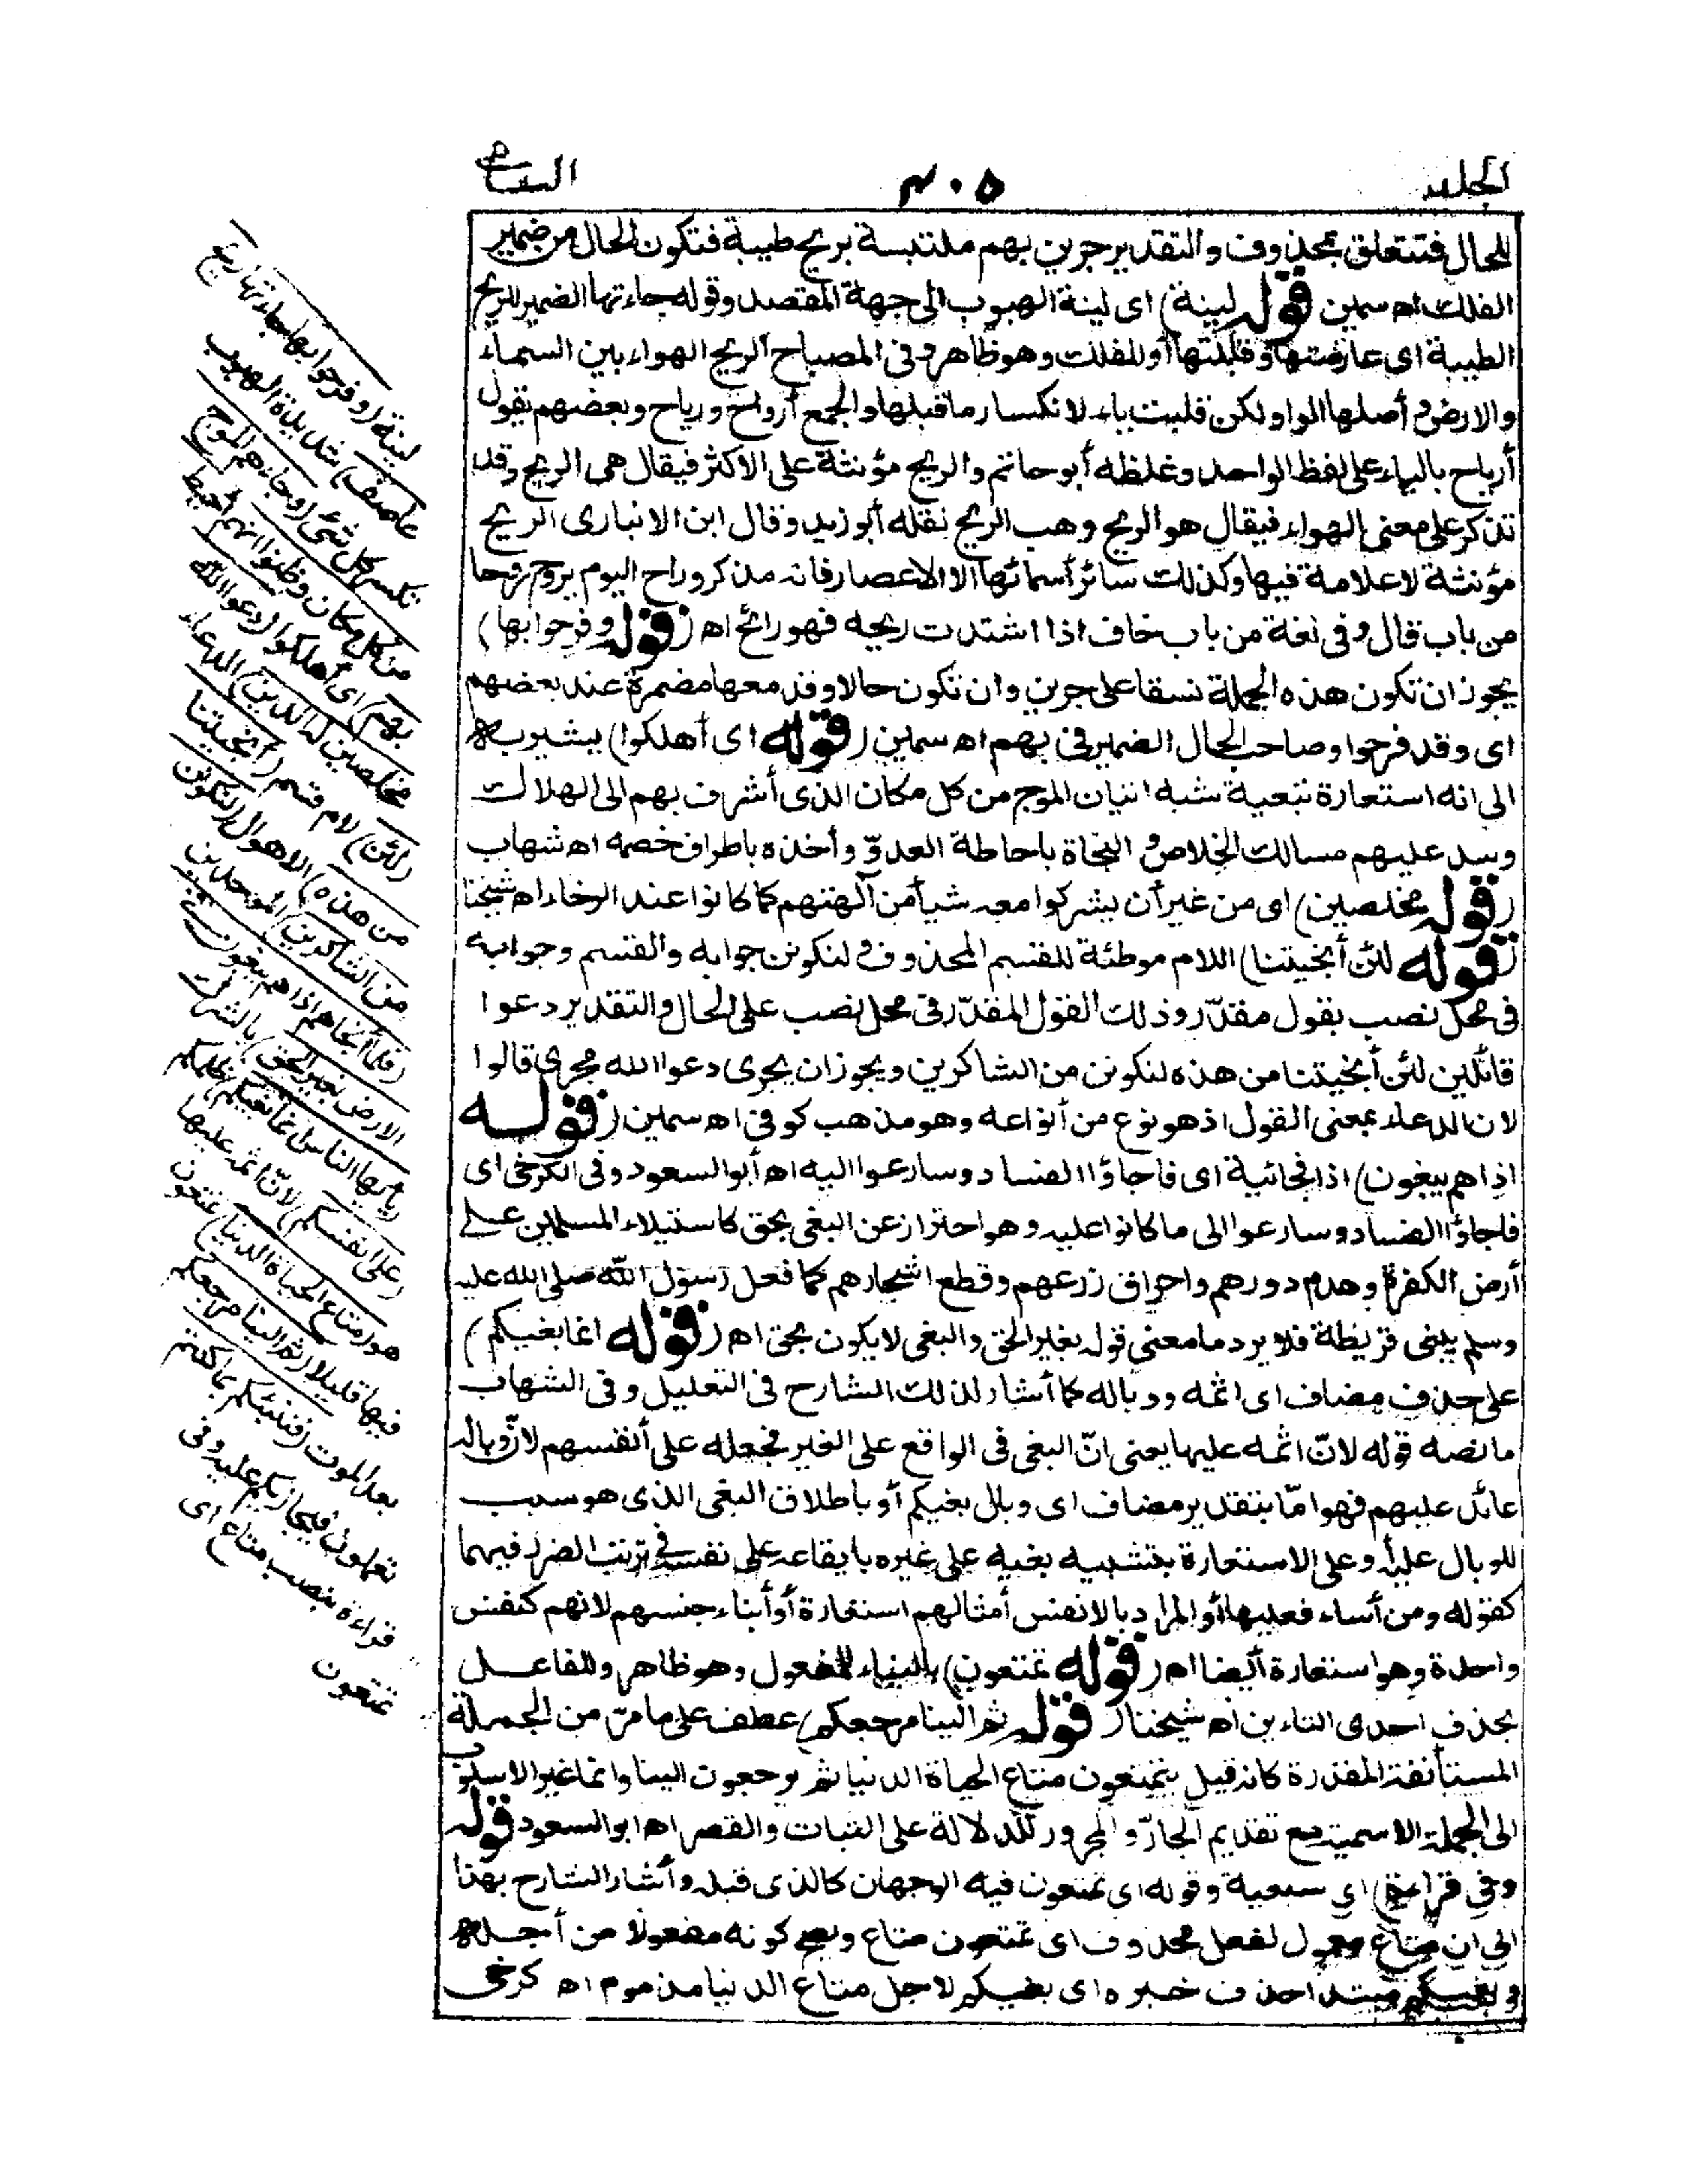 الجلد ٣٠٥ السابع
للحال فتتعلق بمحذوف والتقدير جرين بهم ملتبسة بريح طيبة فتكون الحال من ضمير
الفلك اه سمين (قوله لينة) اى لينة الهبوب الى جهة المقصد وقوله جاءتها الضمير للريح
الطيبة اى عارضتها وقابلتها أو للفلك وهو ظاهر وفى المصباح الريح الهواء بين السماء
والارض وأصلها الواو لكن قلبت ياء لانكسار ما قبلها والجمع أرواح ورياح وبعضهم يقول
أرياح بالياء على لفظ الواحد وغلطه أبو حاتم والريح مؤنثة على الاكثر فيقال هى الريح وقد
تذكر على معنى الهواء فيقال هو الريح وهب الريح نقله أبو زيد وقال ابن الانبارى الريح
مؤنثة لا علامة فيها وكذلك سائر أسمائها الا الاعصار فانه مذكر وراح اليوم يروح روحا
من باب قال وفى لغة من باب خاف اذا اشتدت ريحه فهو رائح اه (قوله وفرحوا بها)
يجوز ان تكون هذه الجملة نسقا على جرين وان تكون حالا وقد معها مضمرة عند بعضهم
اى وقد فرحوا وصاحب الحال الضمير فى بهم اه سمين (قوله اى أهلكوا) يشير به
الى انه استعارة تبعية شبه اتيان الموج من كل مكان الذى أشرف بهم الى الهلاك
وسد عليهم مسالك الخلاص و النجاة باحاطة العدوّ وأخذه باطراف خصمه اه شهاب
(قوله مخلصين) اى من غير أن يشركوا معه شيأ من آلهتهم كما كانوا عند الرخاء اه شيخنا
(قوله لئن أنجيتنا) اللام موطئة للقسم المحذوف و لنكونن جوابه والقسم وجوابه
فى محل نصب بقول مقدّر وذلك القول المقدّر فى محل نصب على الحال والتقدير دعوا
قائلين لئن أنجيتنا من هذه لنكونن من الشاكرين ويجوز ان يجرى دعوا الله مجرى قالوا
لان الدعاء بمعنى القول اذ هو نوع من أنواعه وهو مذهب كوفى اه سمين (قوله
اذا هم يبغون) اذا فجائية اى فاجاؤا الفساد وسارعوا اليه اه أبو السعود وفى الكرخى اى
فاجاؤا الفساد وسارعوا الى ما كانوا عليه وهو احتراز عن البغى بحق كاستيلاء المسلمين على
أرض الكفرة وهدم دورهم واحراق زرعهم وقطع اشجارهم كما فعل رسول الله صلى الله عليه
وسلم ببنى قريظة فلا يرد ما معنى قوله بغير الحق والبغى لا يكون بحق اه (قوله انما بغيكم)
على حذف مضاف اى اثمه ووباله كما أشار لذلك الشارح فى التعليل وفى الشهاب
ما نصه قوله لانّ اثمه عليها يعنى انّ البغى فى الواقع على الغير فجعله على أنفسهم لانّ وباله
عائد عليهم فهو امّا بتقدير مضاف اى وبال بغيكم أو باطلاق البغى الذى هو سبب
للوبال عليه أو على الاستعارة بتشبيه بغيه على غيره بايقاعه على نفسه فى ترتب الضرر فيهما
كقوله ومن أساء فعليها أو المراد بالانفس أمثالهم استعارة أو أبناء جنسهم لانهم كنفس
واحدة وهو استعارة أيضا اه (قوله تمتعون) بالبناء للمفعول وهو ظاهر وللفاعل
بحذف احدى التاءين اه شيخنا (قوله ثم الينا مرجعكم) عطف على ما مرّ من الجملة
المستأنفة المقدرة كانه قيل تتمتعون متاع الحياة الدنيا ثم ترجعون الينا وانما غير الاسلوب
الى الجملة الاسمية مع تقديم الجارّ والمجرور للدلالة على الثبات والقصر اه ابو السعود قوله
وفى قراءة) اى سبعية وقوله اى تمتعون فيه الوجهان كالذى قبله وأشار الشارح بهذا
الى ان متاع معمول لفعل محذوف اى تمتعون متاع ويصح كونه مفعولا من أجله
وبغيكم مبتدا حذف خبره اى بغيكم لاجل متاع الدنيا مذموم اه كرخى
لينة (وفرحوا بها جاءتها ريح
عاصف) شديدة الهبوب
تكسر كل شئ (وجاءهم الموج
من كل مكان وظنوا انهم أحيط
بهم) اى أهلكوا (دعوا الله
مخلصين له الدين) الدعاء
(لئن) لام قسم (أنجيتنا
من هذه) الاهوال (لنكونن
من الشاكرين) الموحدين
(فلما أنجاهم اذا هم يبغون فى
الارض بغير الحق) بالشرك
(يأيها الناس انما بغيكم) ظلمكم
(على أنفسكم) لانّ اثمه عليها
هو (متاع الحياة الدنيا) تمتعون
فيها قليلا (ثم الينا مرجعكم)
بعد الموت (فننبئكم بما كنتم
تعملون) فيجازيكم عليه وفى
قراءة بنصب متاع اى
تمتعون